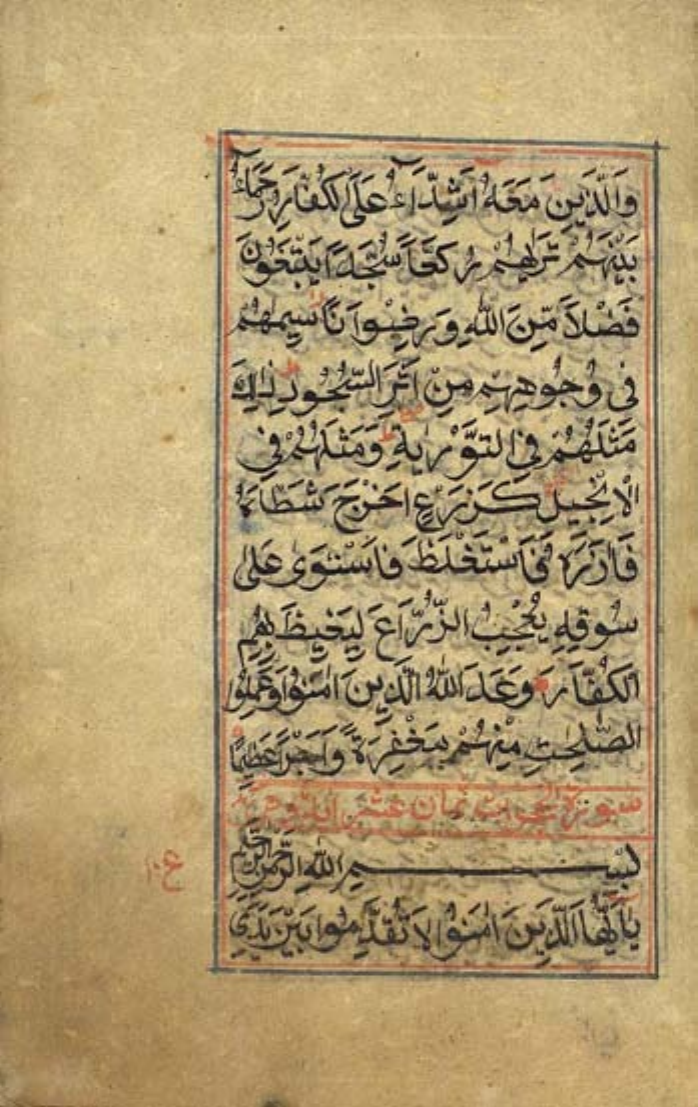 وَالَّذِينَ مَعَهُ اَشِدَّاءُ عَلَى الْكُفَّارِ رُحَمَاءُ
بَيْنَهُمْ تَرٰىهُمْ رُكَّعًا سُجَّدًا يَبْتَغُونَ
فَضْلًا مِّنَ اللّٰهِ وَرِضْوَانًا سِيمٰهُمْ
فِي وُجُوهِهِم مِنْ اَثَرِ السُّجُودِ ذٰلِكَ
مَثَلُهُمْ فِي التَّوْرٰيةِ وَمَثَلُهُمْ فِي
الْاِنْجِيلِ كَزَرْعٍ اَخْرَجَ شَطْأَهُ
فَاٰزَرَهُ فَاسْتَغْلَظَ فَاسْتَوٰى عَلٰى
سُوقِهِ يُعْجِبُ الزُّرَّاعَ لِيَغِيظَ بِهِمُ
الْكُفَّارَ وَعَدَ اللّٰهُ الَّذِينَ اٰمَنُوا وَعَمِلُوا
الصّٰلِحٰتِ مِنْهُمْ مَغْفِرَةً وَاَجْرًا عَظِيمًا
سورة الحجرات ثمان عشر اية
بِسْمِ اللّٰهِ الرَّحْمٰنِ الرَّحِيمِ
يٰاَيُّهَا الَّذِينَ اٰمَنُوا لَا تُقَدِّمُوا بَيْنَ يَدَيِ
ع